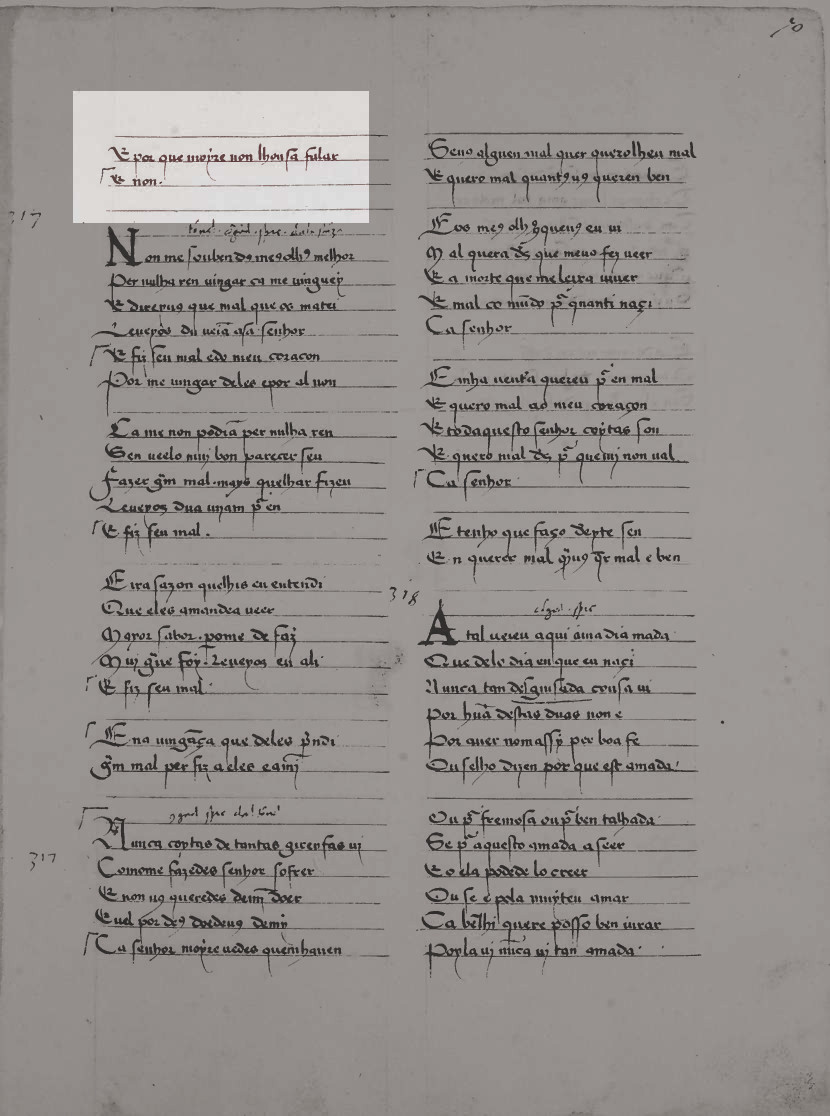 E por que moyre non lhousã falar
E non.
Non me soubendꝯ meꝯ olhꝯ melhor
Per nulha ren uingar ca me uinguey
E direyuꝯ que mal que os matei
Leueyos du ueiã assa senhor
E fiz seu mal e do meu coraçon
Por me uingar deles e por al non
Ca me non podiã per nulha ren
Sen ueelo muj bon parecer seu
Fazer grã mal. mays quelhar fizeu
Leueyos dua uijam pʳ en
E fiz seu mal.
E ira sazon quelhis eu entendi
Que eles amandea ueer
Mayor sabor. pome de faz̃
Muj grãue foy. Leueyos en ali
E fiz seu mal.
E na uingãça que deles p̃ndi
Grã mal per fiz a eles e a mĩ
Nunca coytas de tantas guisas ui
Comome fazedes senhor sofrer
E non uꝯ queredes demĩ doer
E uel por deꝯ doedeuꝯ demj
Ca senhor moyre uedes quemhauen
Seuꝯ alguen mal quer querolheu mal
E quero mal quantꝯ uꝯ queren ben
Eos meꝯ olhꝯ q̃ quenꝯ eu ui
Mal quera dꝯ que meuo fez ueer
E a morte que me leixa uiuer
E mal co mũdo pʳ quanti naçi
Ca senhor
E inha uentʳa quereu pʳ en mal
E quero mal ao meu coraçon
E todaquesto senhor coytas son
E quero mal dꝯ pʳ quemj non ual
Ca senhor
E tenho que faço dereyte sen
En querer mal q̃ uꝯ q̃r mal e ben
318
Atal ueieu aqui ama dia mada
Que delo dia en que eu naçi
Nunca tan desguisada cousa ui
Por hũa destas duas non e
Por auer nomassy per boa fe
Ou selho dizen por que est amada.
Ou pʳ fremosa ou pʳ ben talhada
Se pʳ aquesto amada a seer
E o ela podede lo creer
Ou se e pola muyteu amar
Ca bẽlhi quere posso ben iurar
Poyla uj nũca uj tan amada.